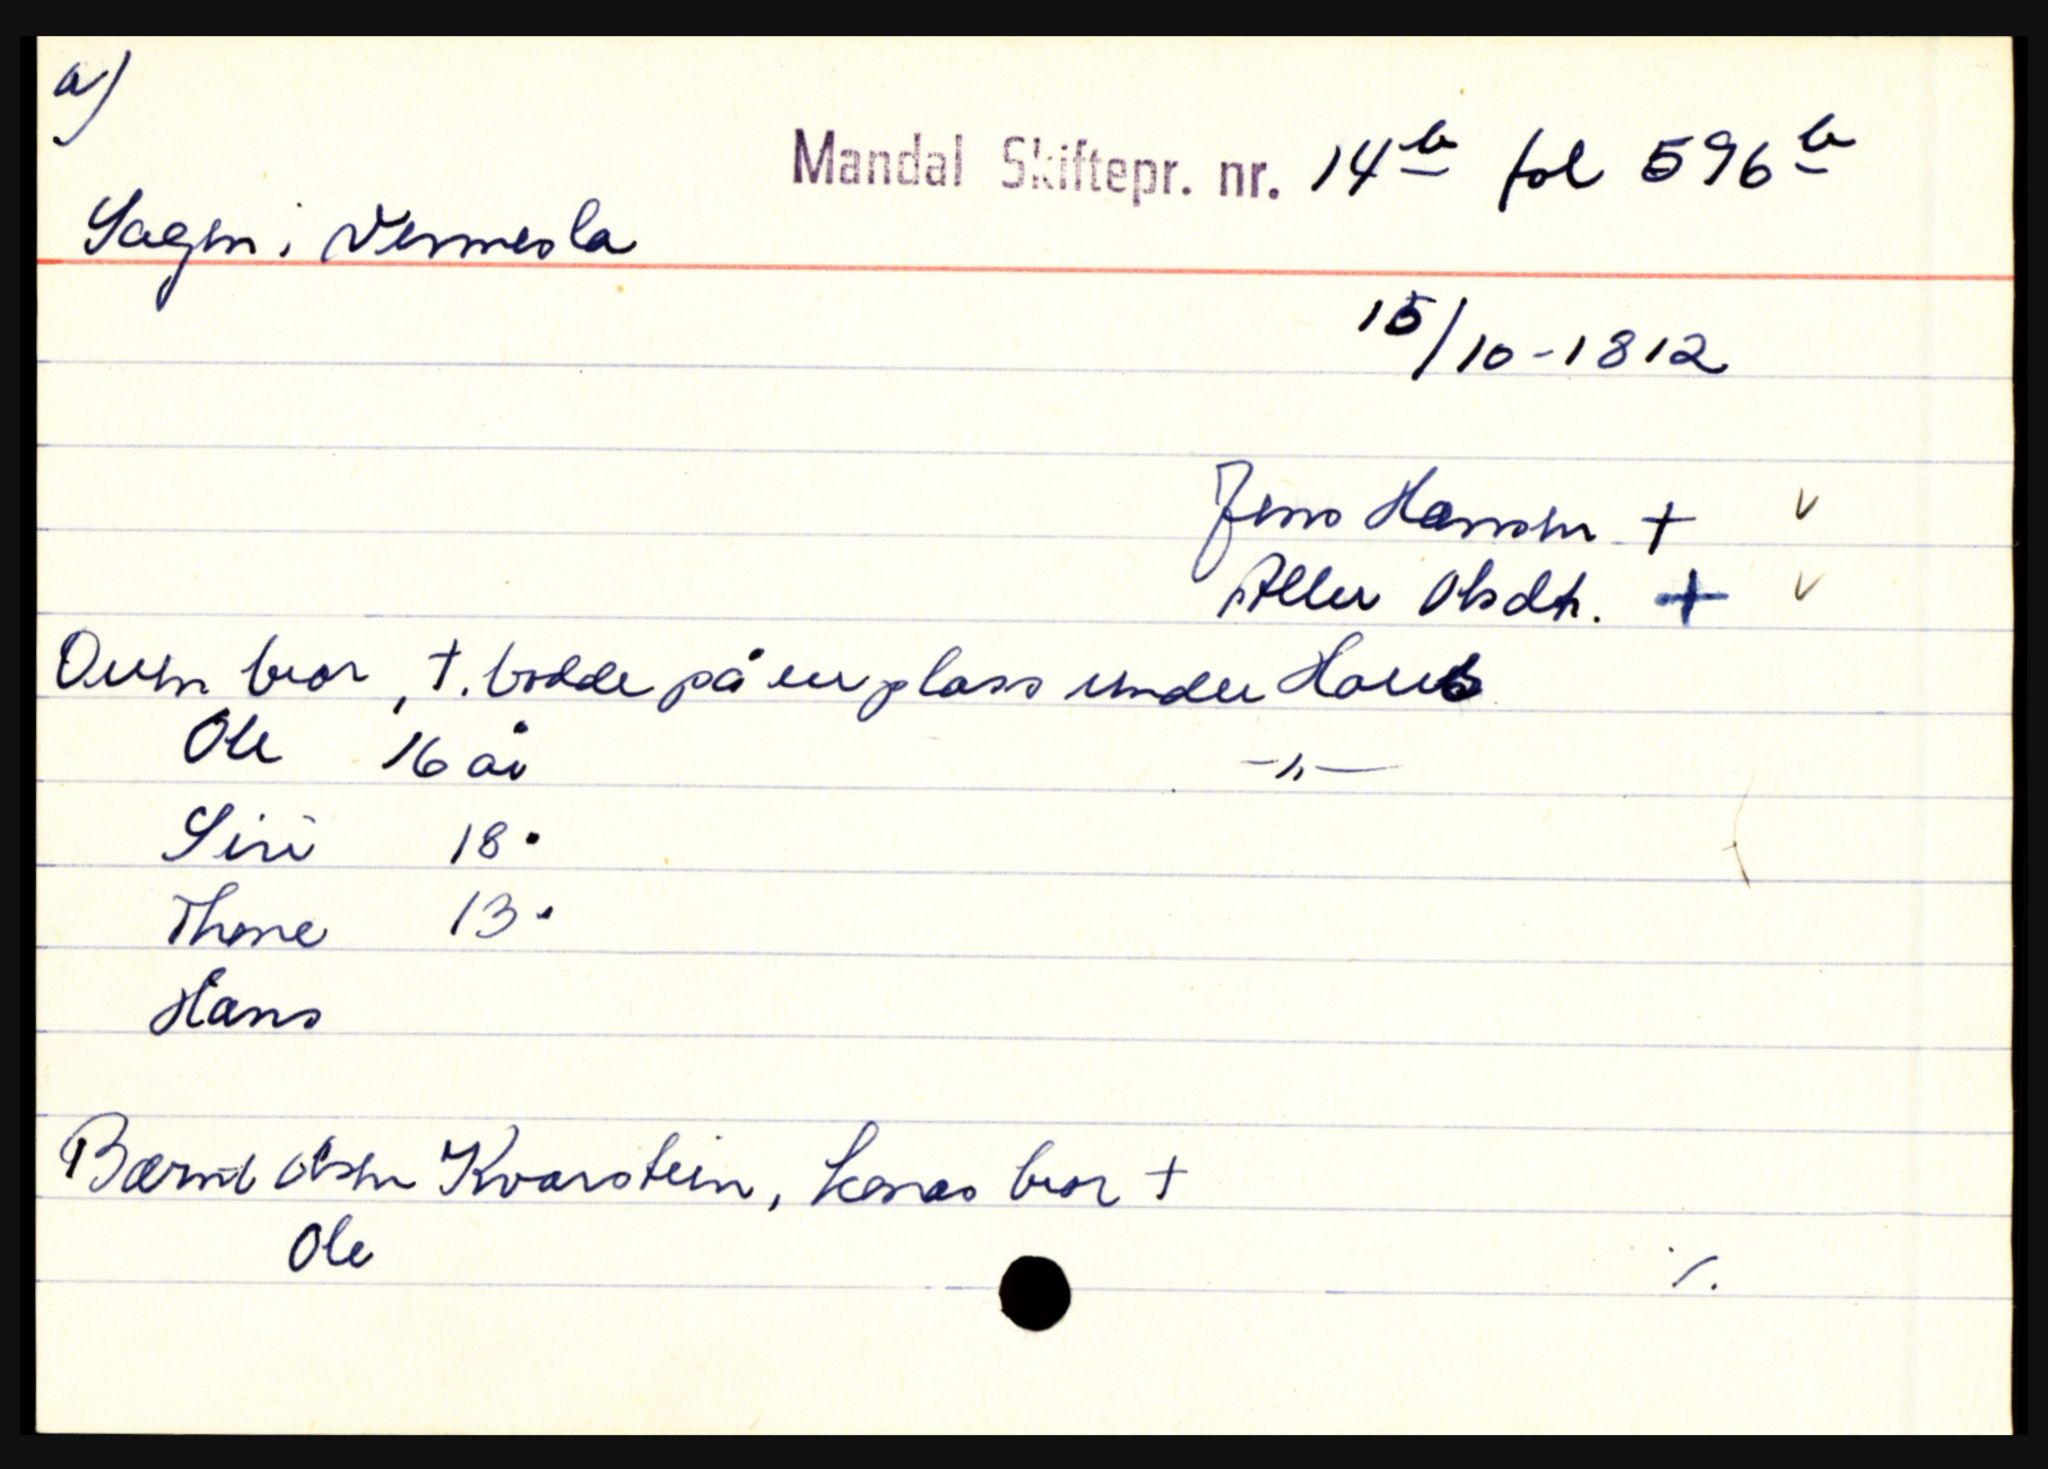 a)
Mandal Skiftepr. nr. 14b fol 596b
Sagen i Vennesla
15/10-1812
Jens Hansen + v
Aller Olsdtr. + v
Oven bror, +. bodde på en plass under Haus
Ole 16 år -"-
Siri 18 .
Thone 13 .
Hans
Bærent Olsen Kvarstein, konas bror +
Ole
./.